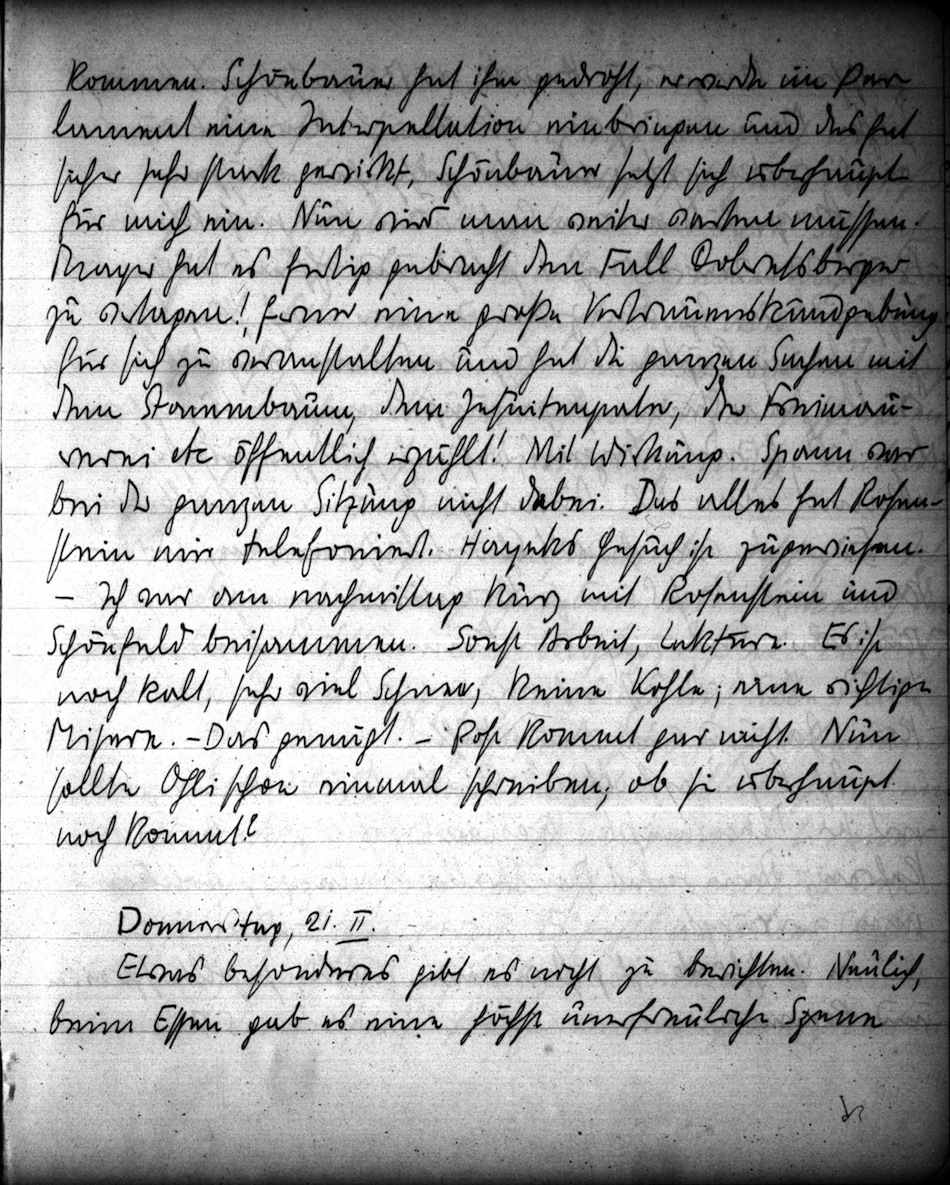 kommen. Schönbauer hat ihm gedroht, er werde im Par-
lament eine Interpellation einbringen und das hat
sicher sehr stark gewirkt, Schönbauer setzt sich überhaupt
für mich ein. Nun wird man weiter warten müssen.
Mayer hat es fertig gebracht den Fall Dobretsberger
zu vertagen!, ferner eine große Vertrauenskundgebung
für sich zu veranstalten und hat die ganzen Sachen mit
dem Stammbaum, dem Jesuitenpater, der Freimau-
rerei etc öffentlich erzählt! Mit Wirkung. Spann war
bei der ganzen Sitzung nicht dabei. Das alles hat Rosen-
stein mir telefoniert. Hayeks Gesuch ist zugewiesen.
– Ich war am nachmittag kurz mit Rosenstein und
Schönfeld beisammen. Sonst Arbeit, Lektüre. Es ist
noch kalt, sehr viel Schnee, keine Kohle; eine richtige
Misere. – Das genügt. – Post kommt gar nicht. Nun
sollte Ohli schon einmal schreiben, ob sie überhaupt
noch kommt?
Donnerstag, 21. II.
Etwas besonderes gibt es nicht zu berichten. Neulich,
beim Essen gab es eine höchst unerfreuliche Szene